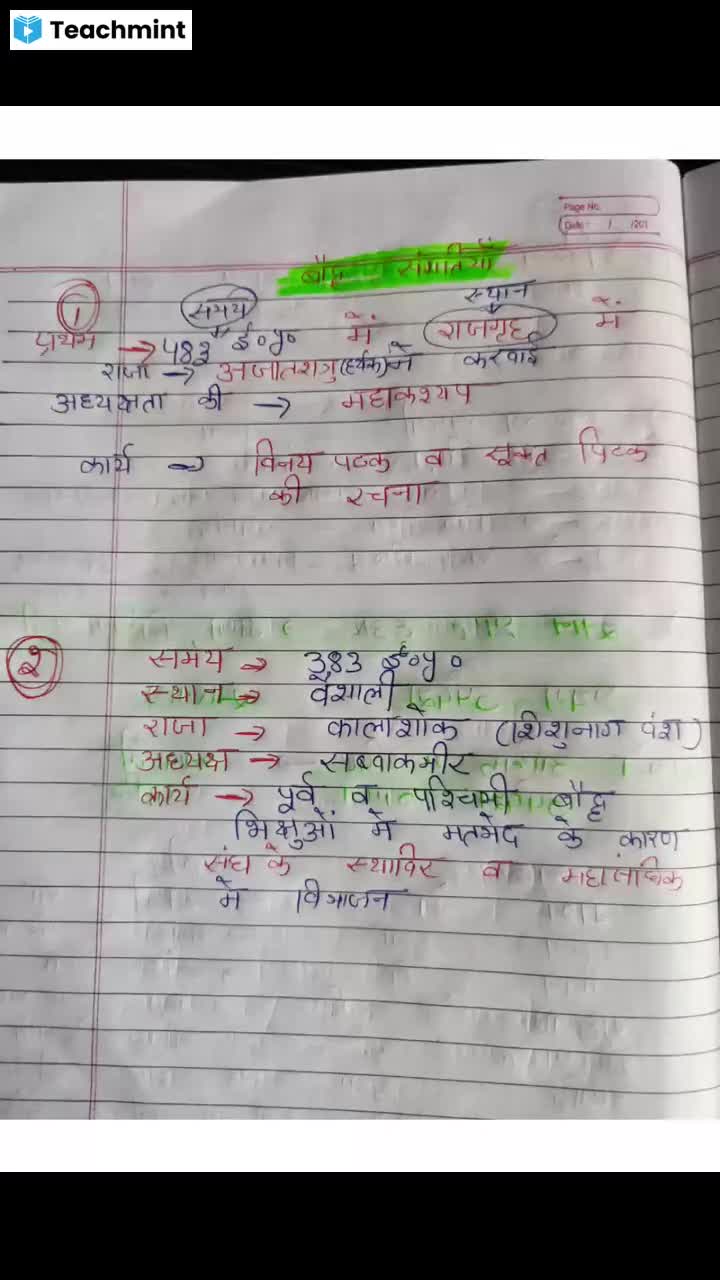 Teachmint
Page No.
Date: / /201
बौद्ध संगीतियाँ
① समय स्थान
प्रथम → 483 ई०पू० में राजगृह में
राजा → अजातशत्रु (हर्यक) ने करवाई
अध्यक्षता की → महाकश्यप
कार्य → विनय पटक व सूक्त पिटक
की रचना
2 समय → 383 ई०पू०
स्थान → वैशाली
राजा → कालाशोक (शिशुनाग वंश)
अध्यक्ष → सब्वाकमीर
कार्य → पूर्व व पश्चिमी बौद्ध
भिक्षुओं में मतभेद के कारण
संघ के स्थाविर व महासंघिक
में विभाजन